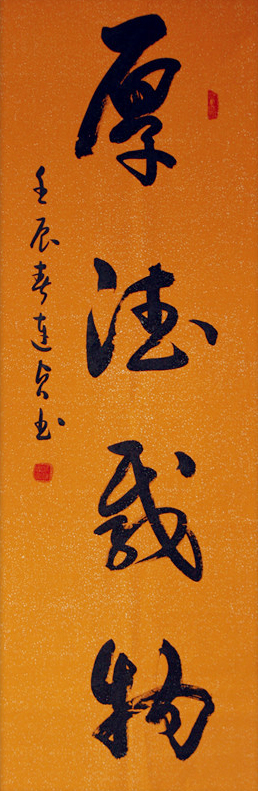 厚德载物
壬辰春连贞书